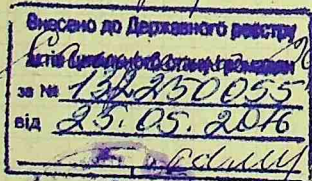 Внесено до Державного реєстру
актів цивільного стану громадян
за № 132250055
від 25.05.2016